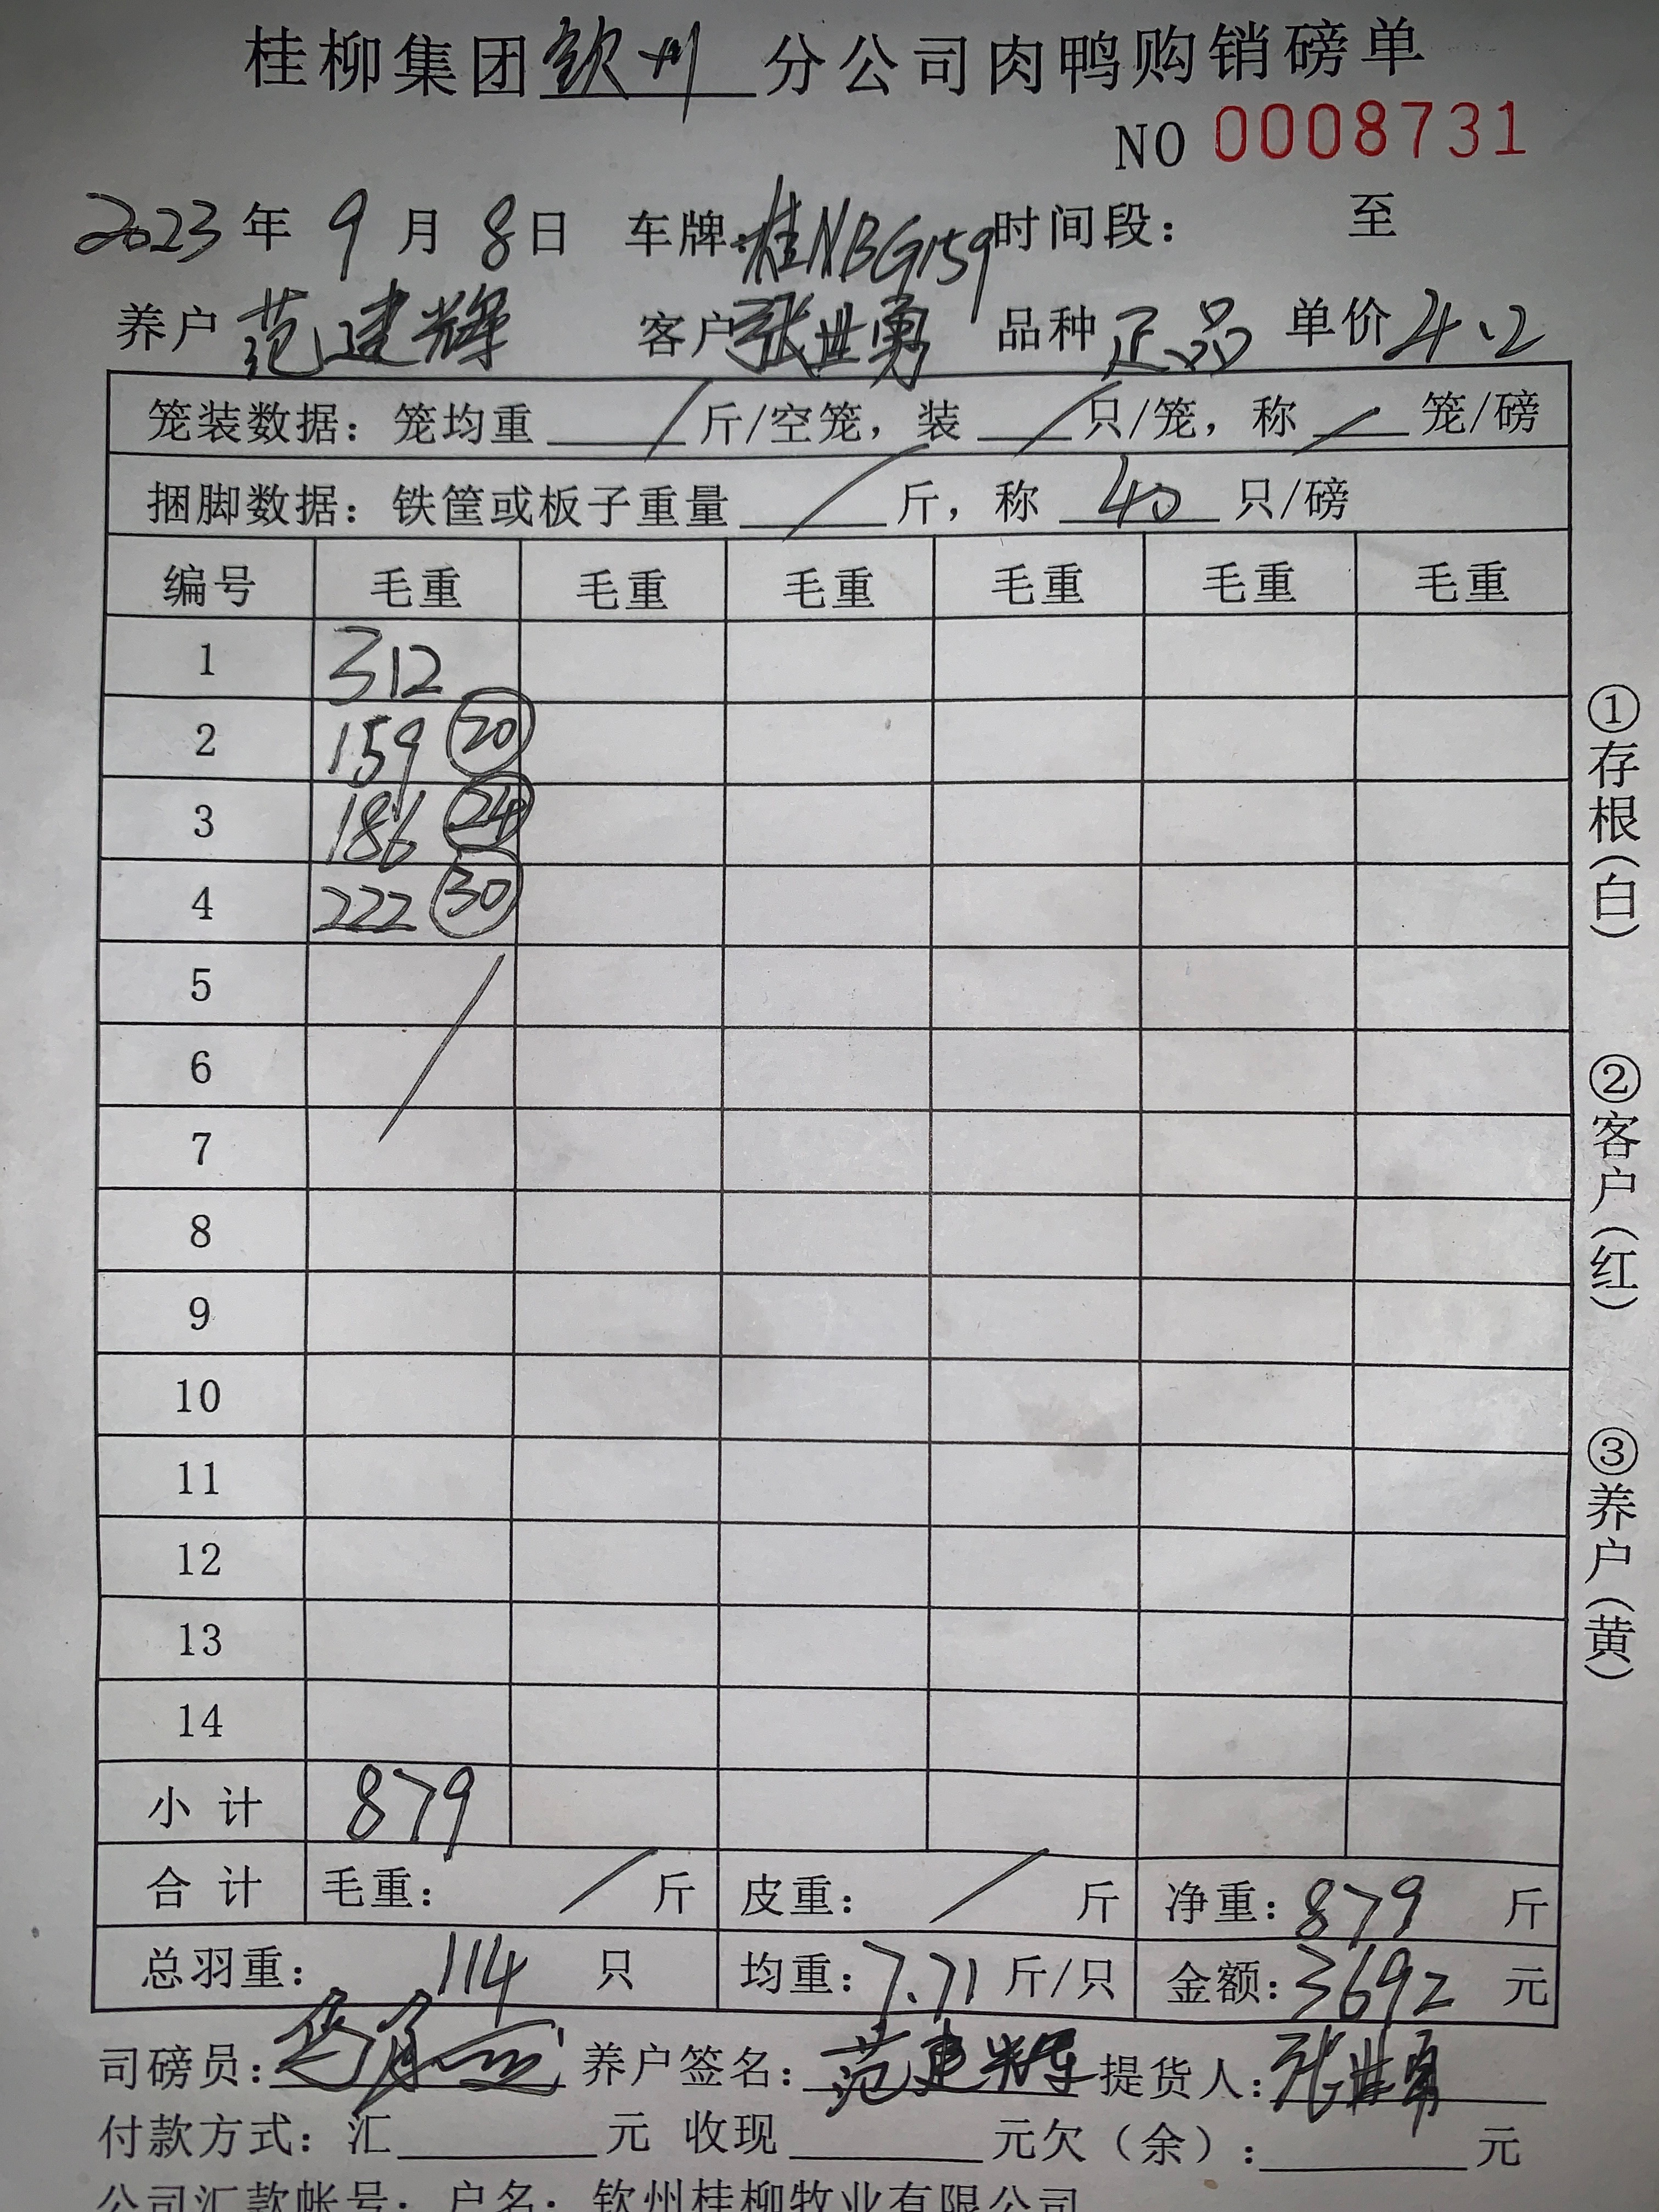 桂柳集团钦州分公司肉鸭购销磅单
NO 0008731
2023年9月8日 车牌:桂NBG159 时间段: 至
养户 范建辉 客户 张世勇 品种 正品 单价 4.2
笼装数据:笼均重 / 斤/空笼,装 / 只/笼,称 / 笼/磅
捆脚数据:铁筐或板子重量 / 斤,称 40 只/磅
编号 毛重 毛重 毛重 毛重 毛重 毛重
1 312
2 159 ⑳
3 186 ㉔
4 222 ㉚
5
6
7
8
9
10
11
12
13
14
小计 879
合计 毛重: / 斤 皮重: / 斤 净重:879 斤
总羽重: 114 只 均重:7.71 斤/只 金额:3692 元
司磅员: 养户签名:范建辉 提货人:张世勇
付款方式:汇 元 收现 元欠(余): 元
公司汇款帐号:户名:钦州桂柳牧业有限公司
①存根(白)
②客户(红)
③养户(黄)